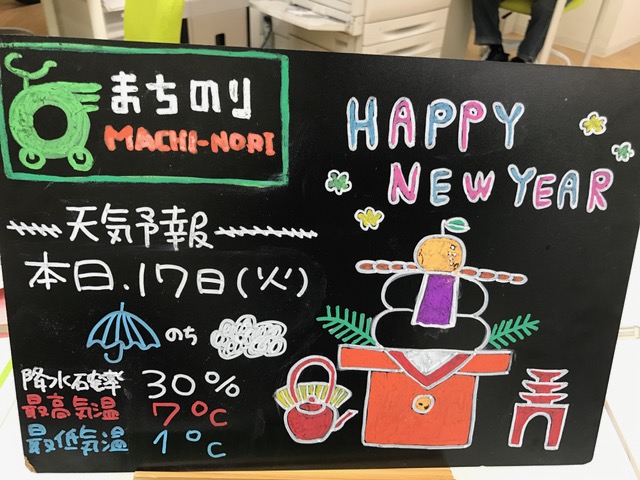 まちのり
MACHI-NORI
HAPPY
NEW YEAR
天気予報
本日.17日(火)
のち
降水確率 30%
最高気温 7℃
最低気温 1℃